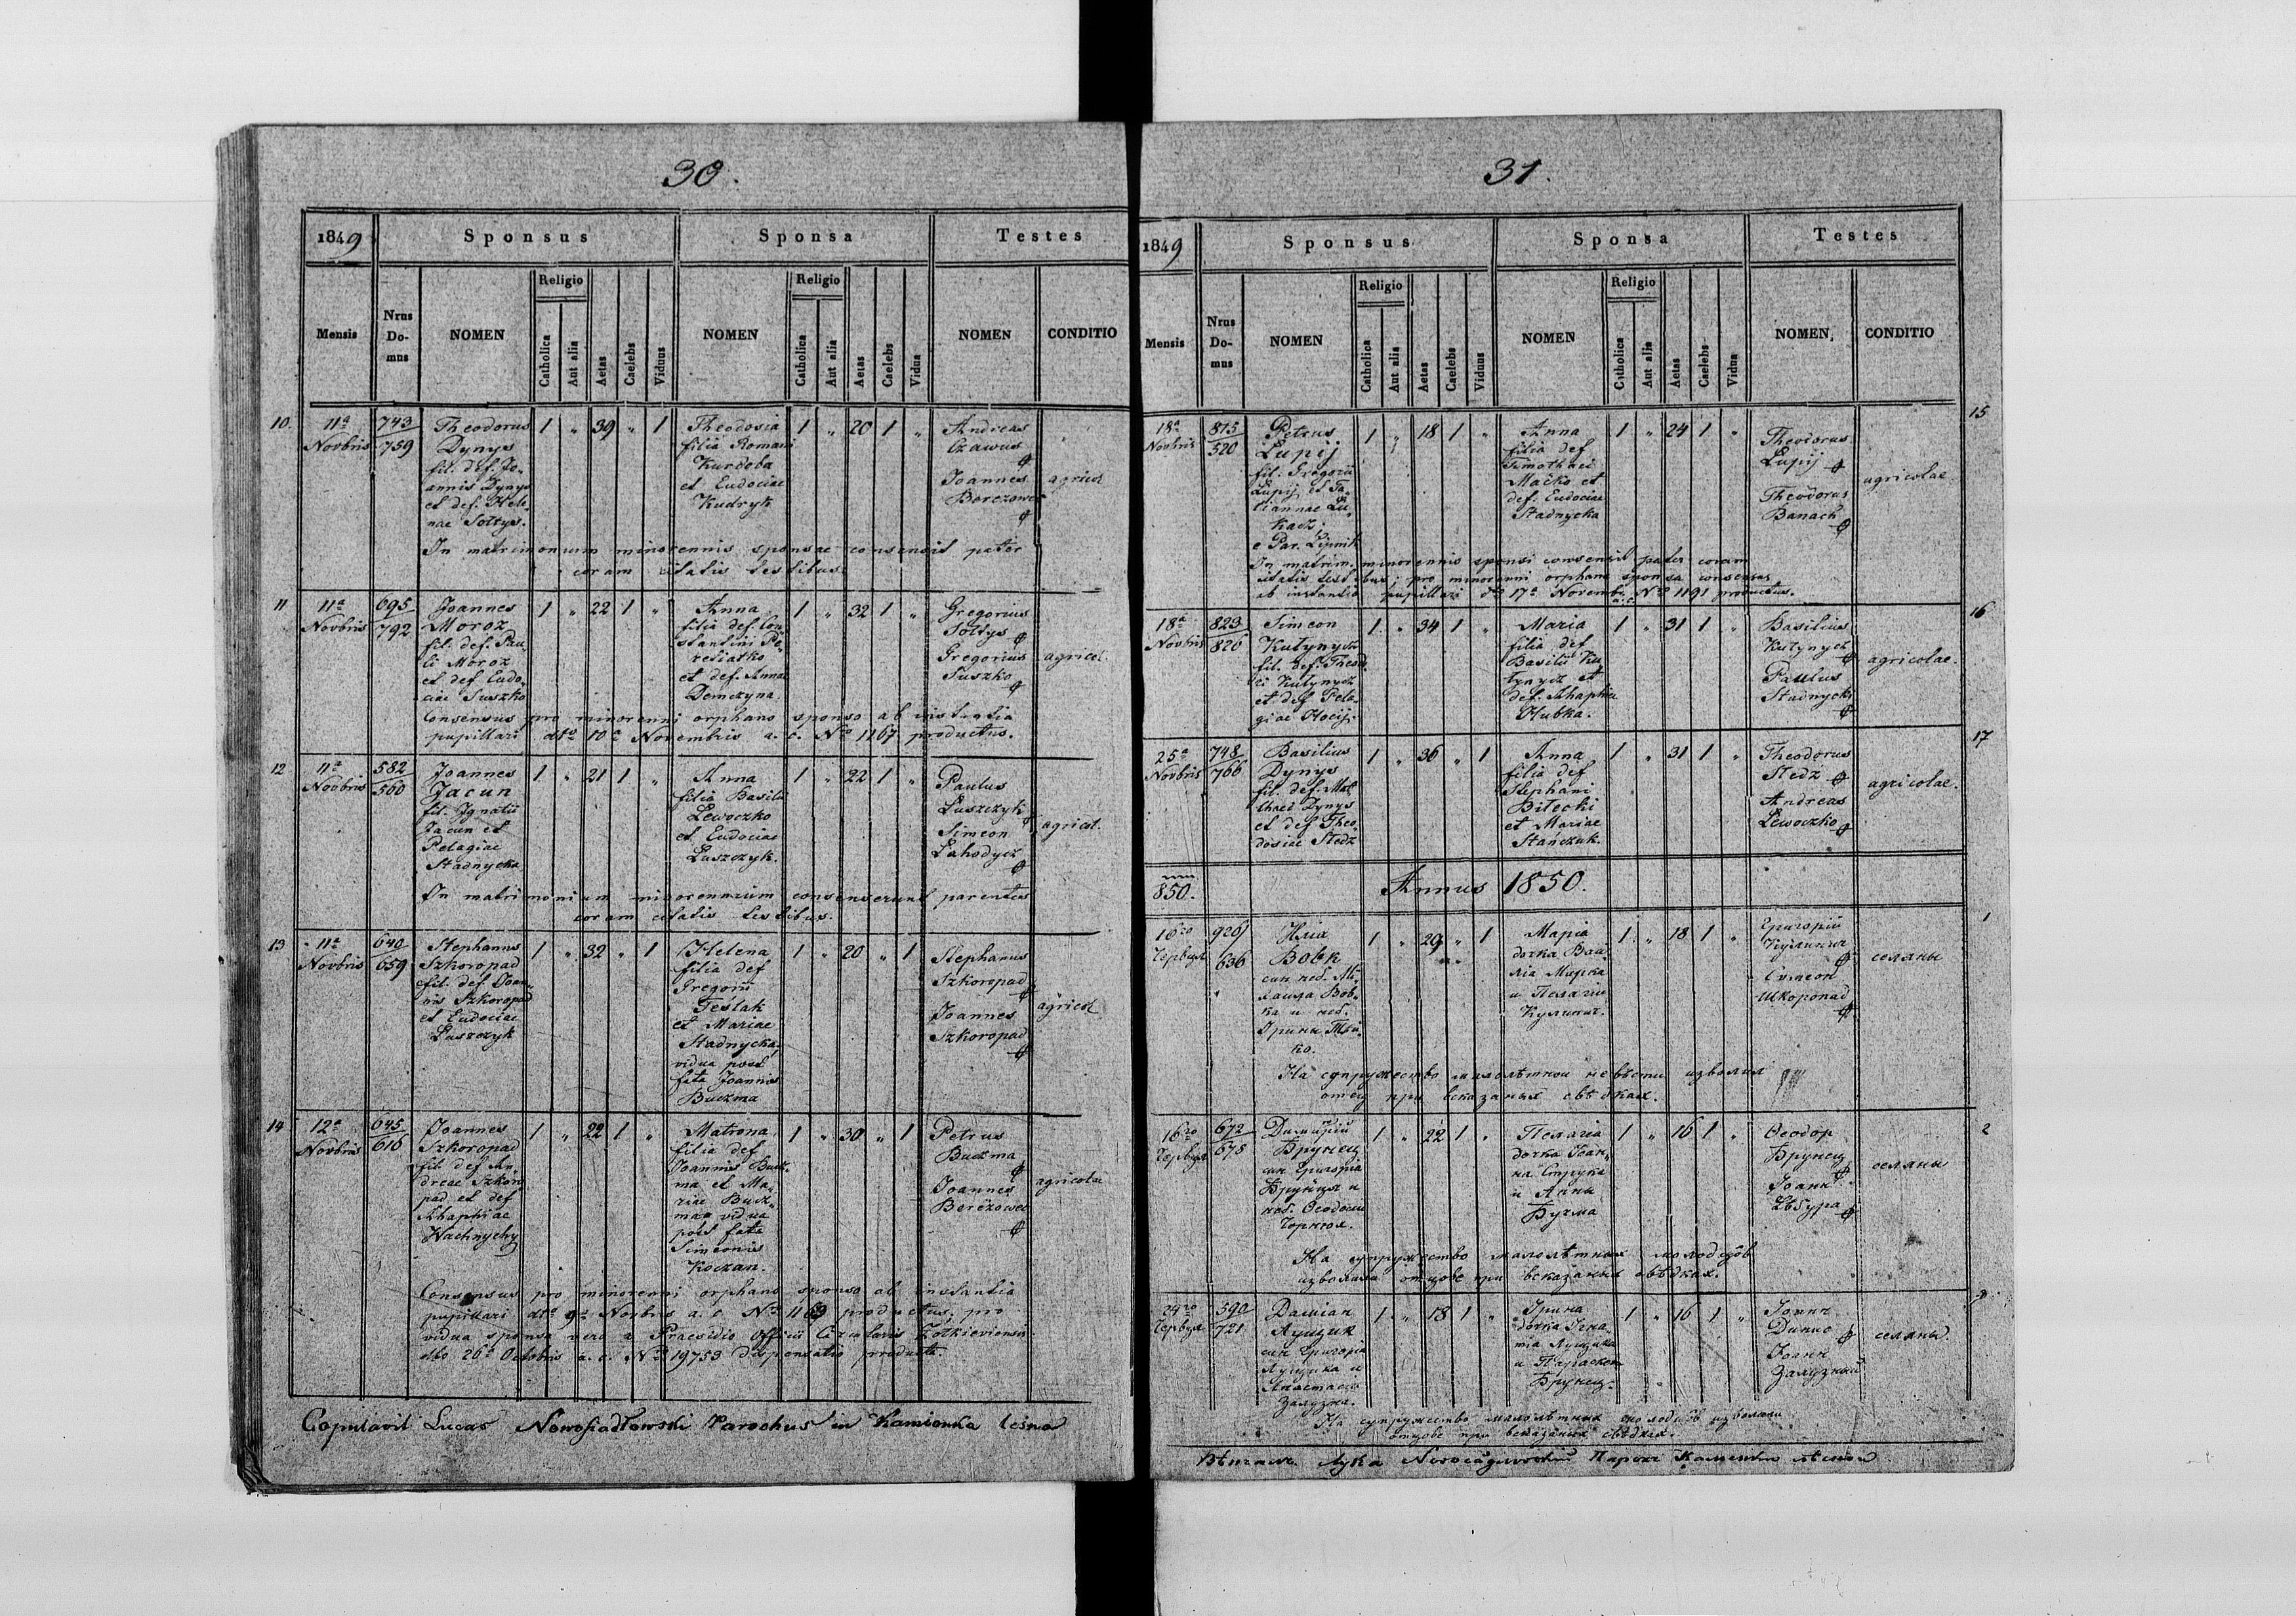 30.
1849
Sponsus
Sponsa
Testes
Mensis
Nrus Do-mus
NOMEN
Religio
Catholica
Aut alia
Aetas
Caelebs
Viduus
NOMEN
Religio
Catholica
Aut alia
Aetas
Caelebs
Vidua
NOMEN
CONDITIO
10.
11a
Novbris
743
759
Theodorus
Dynys
fil. def. Jo-
annis Dynys
et def. Hele-
nae Sołtys.
1 „ 39 „ 1
Theodosia
filia Romani
Kurdoba
et Eudociae
Kudryk
1 „ 20 1 „
Andreas
Czawus
Joannes
Borczowec
agricol
In matrimonium minorennis sponsae consensit pater
coram citatis testibus
11
11a
Novbris
695
792
Joannes
Moroz
fil. def. Pau-
li Moroz
et def Eudo-
ciae Suszko
1 „ 22 1 „
Anna
filia def. Con-
stantini Pe-
resiatko
et def. Anna
Demczyna
1 „ 32 1 „
Gregorius
Sołtys
Gregorius
Suszko
agricol
Consensus pro minorenni orphano sponso ab instantia
pupillari dto 10a Novembris a. c. No 1167 productus.
12
11a
Novbris
582
560
Joannes
Jacun
fil. Ignatii
Jacun et
Pelagiae
Stadnycka
1 „ 21 1 „
Anna
filia Basilii
Lewoczko
et Eudociae
Łuszczyk.
1 „ 22 1 „
Paulus
Łuszczyk
Simeon
Łahodycz
agricol.
In matrimonium minorennium consenserunt parentes
coram citatis testibus.
13
11a
Novbris
640
659
Stephanus
Szkoropad
fil. def. Joan-
nis Szkoropad
et Eudociae
Łuszczyk
1 „ 32 „ 1
Helena
filia def
Gregorii
Teślak
et Mariae
Stadnycka,
vidua post
fata Joannis
Buczma
1 „ 20 „ 1
Stephanus
Szkoropad
Joannes
Szkoropad
agricol
14
12a
Novbris
645
616
Joannes
Szkoropad
fil. def An-
dreae Szkoro-
pad et def
Ahaphiae
Hachnychy
1 „ 22 1 „
Matrona
filia def
Joannis Bucz-
ma et Ma-
riae Bucz-
mas vidua
post fata
Simeonis
Koczan.
1 „ 30 „ 1
Petrus
Buczma
Joannes
Berezowec
agricolae
Consensus pro minorenni orphano sponso ab instantia
pupillari dto 9a Novbris a. c. No 1169 productus, pro
vidua sponsa vero a Praesidio Officii Circularis Zołkieviensis
ddto 26a Octobris a. c. No 19753 dispensatio producta.
Copulavit Lucas Nowosiadłowski Parochus in Kamionka leśna
31.
1849
Sponsus
Sponsa
Testes
Mensis
Nrus Do-mus
NOMEN
Religio
Catholica
Aut alia
Aetas
Caelebs
Viduus
NOMEN
Religio
Catholica
Aut alia
Aetas
Caelebs
Vidua
NOMEN,
CONDITIO
15
18a
Novbris
815
520
Petrus
Łupij
fil. Gregorii
Łupij et Ta-
tiannae Łu-
kacz,
e Par. Lipnik
1 „ 18 1 „
Anna
filia def
Timothaei
Maćko et
def. Eudociae
Stadnycka
1 „ 24 1 „
Theodorus
Łupij
Theodorus
Banach
agricolae
In matrim. minorennis sponsi consensit pater coram
citatis testibus; pro minorenni orphana sponsa consensus
ab instantia pupillari dto 17a Novembr. a.c. No 1191 productus.
16
18a
Novbris
823
826
Simeon
Kutynycz
fil. def. Theod.
ei Kutynycz
et def Pela-
giae Hocij.
1 „ 34 1 „
Maria
filia def
Basilii Ku-
tynycz et
def. Ahaphia
Hubka.
1 „ 31 1 „
Basilius
Kutynycz
Paulus
Stadnycki
agricolae.
17
25a
Novbris
748
766
Basilius
Dynys
fil. def. Mat-
thaei Dynys
et def Theo-
dosiae Stedz
1 „ 36 „ 1
Anna
filia def
Stephani
Biłecki
et Mariae
Stańczak.
1 „ 31 1 „
Theodorus
Stedz
Andreas
Lewoczko
agricolae.
850.
Annus 1850.
1
16го
Червця
926
636
Илія
Вовк
син неб. Ми-
хаила Вов-
ка и неб.
Ірини
1 „ 29 „ 1
Марія
дочка Васи-
лія Мирка
и Пелагіи
Кулинич.
1 „ 18 1 „
Григорій
Кулинич
Симеон
Шкоропад
селяны
На супружество малолѣтнои невѣсты изволил
отец при вказаных свѣдках.
2
16го
Червця
672
678
Димитрій
Брунец
син Григорія
Брунця и
неб. Ѳеодосіи
Чорнюх.
1 „ 22 1 „
Пелагіа
дочка Іоан-
на Струка
и Анны
Бучма
1 „ 16 1 „
Ѳеодор
Брунец
Іоанн
Цѣбура
селяны
На супружество малолѣтных молодцѣв
изволили отцове при вказаных свѣдках.
3
29го
Червця
590
721
Даміан
Лущик
син Григорія
Лущика и
Анастасіи
Залузна.
1 „ 18 1 „
Ірина
дочка Игна-
тіа Лущика
и Параскеви
Брунец.
1 „ 16 1 „
Іоанн
Данио
Іоанн
Залузный
селяны.
На супружество малолѣтных молодцѣв изволили
отцове при вказаных свѣдках.
Вѣнчал Лука Новосядловскій Парох Каменки лѣсной